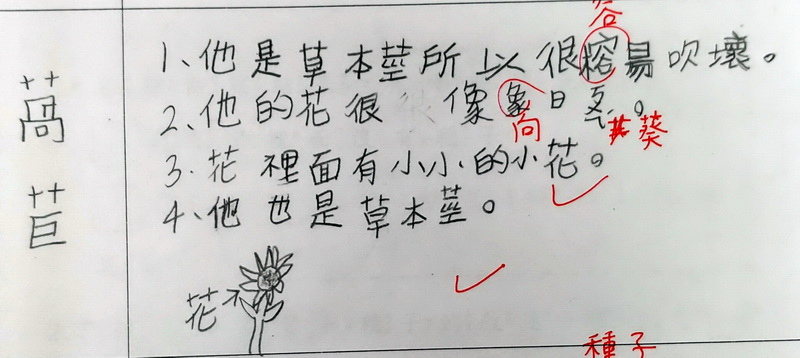 萵苣
容
1、他是草本莖所以很榕易吹壞。
2、他的花很像象日葵。
向 葵
3、花裡面有小小的小花。
4、他也是草本莖。
花
種子